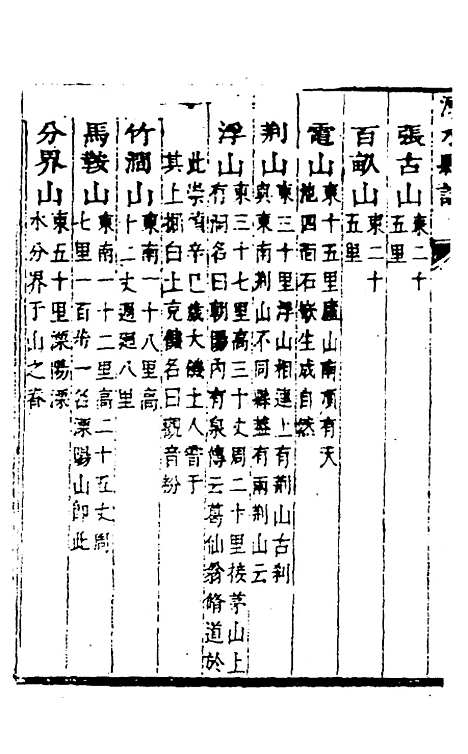 溧水縣誌
張古山東二十
五里
百畝山東二十
五里
電山東十五里廬山南頂有天
池四面石嵌生成自然
荆山東三十里浮山相連上有荆山古刹
與東南荆山不同縣蓋有兩荆山云
浮山東三十七里高三十丈周二十里接茅山上
有洞名曰朝陽內有泉傳云葛仙翁脩道於
此崇禎辛巳歲大饑土人嘗于
其上掘白土克饑名曰觀音粉
竹澗山東南一十八里高
十二丈週廻八里
馬鞍山東南一十二里高二十五丈周
七里一百步一名溧陽山即此
分界山東五十里溧陽溧
水分界于山之脊